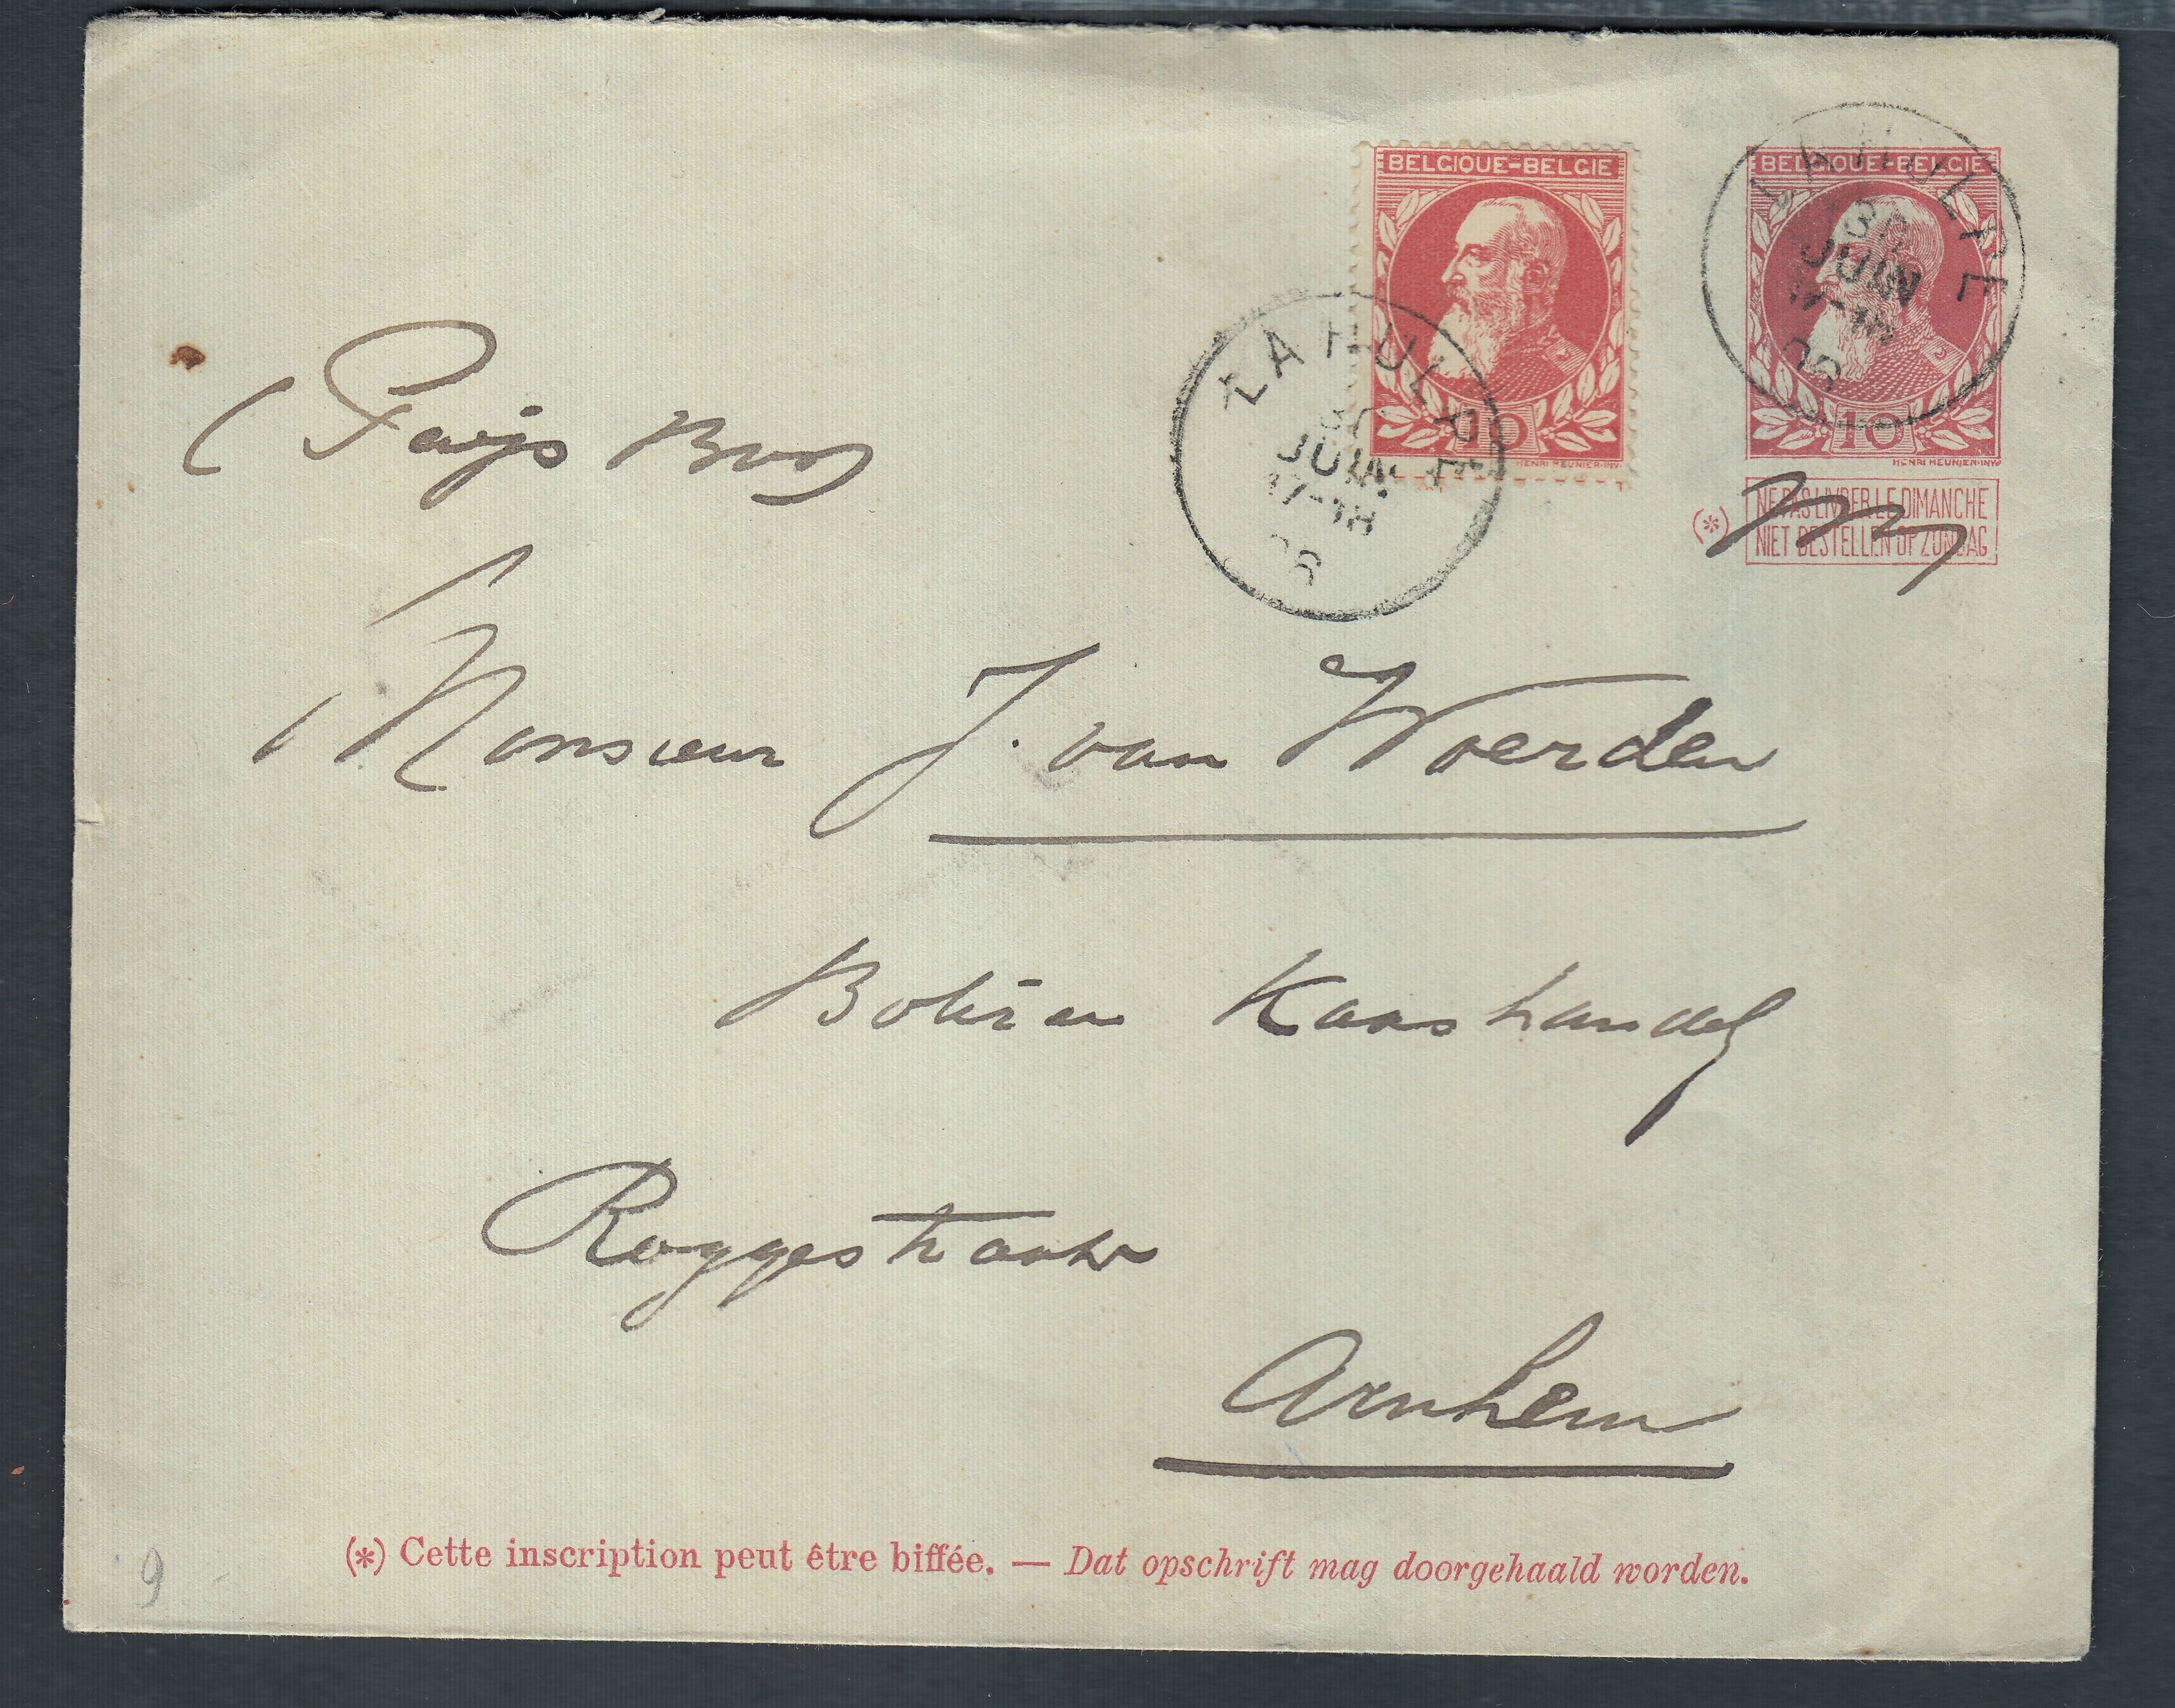 BELGIQUE-BELGIE
10
HENRI MEUNIER·INV.
LA HULPE
30
JUIN
17-18
06
BELGIQUE-BELGIE
10
HENRI MEUNIER·INV.
LA HULPE
30
JUIN
(*) NE PAS LIVRER LE DIMANCHE
NIET BESTELLEN OP ZONDAG
(Pays Bas)
Monsieur J. van Woerden
Kaashandel
Roggestraat
Arnhem
(*) Cette inscription peut être biffée. — Dat opschrift mag doorgehaald worden.
9